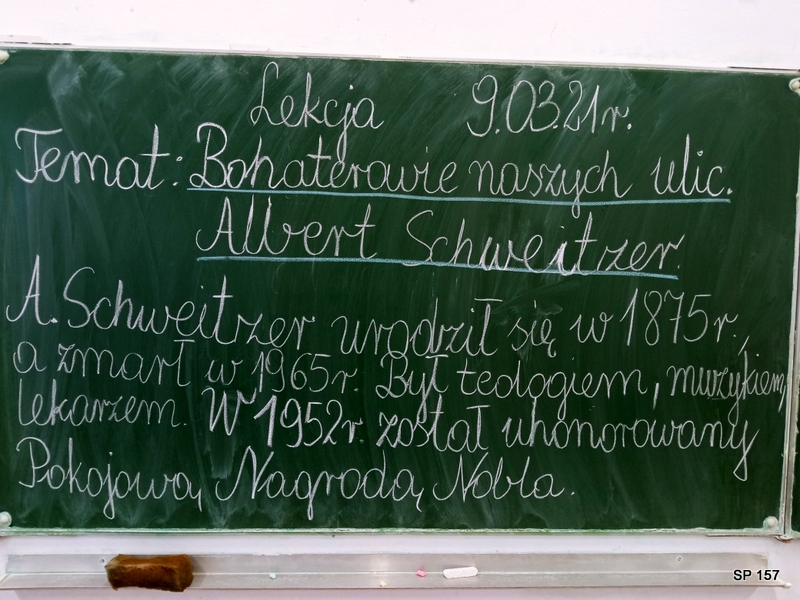 Lekcja 9.03.21r.
Temat: Bohaterowie naszych ulic.
Albert Schweitzer.
A. Schweitzer urodził się w 1875r.,
a zmarł w 1965r. Był teologiem, muzykiem,
lekarzem. W 1952r. został uhonorowany
Pokojową Nagrodą Nobla.
SP 157